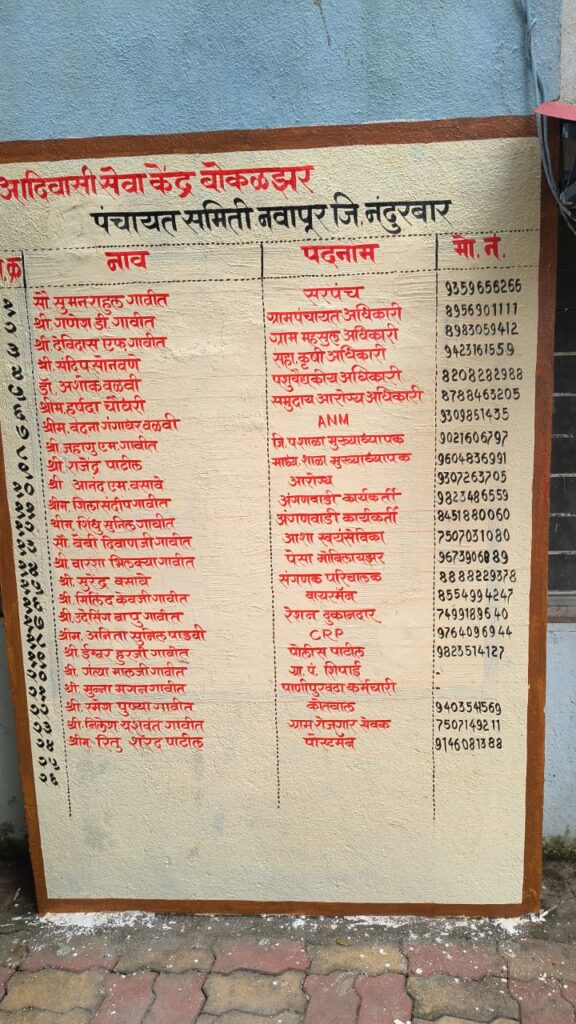 आदिवासी सेवा केंद्र बोकळझर
पंचायत समिती नवापूर जि. नंदुरबार
अ.क्र नाव पदनाम मो. नं.
१ सौ सुमन राहुल गावीत सरपंच 9359656266
२ श्री गणेश डी. गावीत ग्रामपंचायत अधिकारी 8956901111
३ श्री देविदास एफ गावीत ग्राम महसुल अधिकारी 8983059412
४ श्री संदिप सोनवणे सहा. कृषी अधिकारी 9423161559
५ डॉ. अशोक वळवी पशुवैद्यकीय अधिकारी 8208282988
६ श्रीम. हर्षदा चौधरी समुदाय आरोग्य अधिकारी 8788463205
७ श्रीम. वंदना गंगाधर वळवी ANM 9309851435
८ श्री. जहागु एम. गावीत जि. प शाळा मुख्याध्यापक 9021606797
९ श्री. गजेंद्र पाटील माध्य. शाळा मुख्याध्यापक 9604836991
१० श्री आनंद एम वसावे आरोग्य 9307263705
११ श्रीम. शिला संदीप गावीत अंगणवाडी कार्यकर्ती 9823486559
१२ श्रीम. सिंधु सुनिल गावीत अंगणवाडी कार्यकर्ती 8451880060
१३ सौ. बेबी दिवाणजी गावीत आशा स्वयंसेविका 7507031080
१४ श्री वारशा भिलक्या गावीत पेसा मोबिलायझर 9673906889
१५ श्री. सुरेंद्र वसावे संगणक परिचालक 8888229378
१६ श्री. मिलिंद केवजी गावीत वायरमॅन 8554994247
१७ श्री. उदेसिंग बापु गावीत रेशन दुकानदार 7499189640
१८ श्रीम. अनिता सुनिल पाडवी CRP 9764096944
१९ श्री ईश्वर हुरजी गावीत पोलीस पाटील 9823514127
२० श्री. गंत्या मालजी गावीत ग्रा. पं. शिपाई -
२१ श्री. मुन्ना मगन गावीत पाणीपुरवठा कर्मचारी -
२२ श्री. रमेश पुण्या गावीत कोतवाल 940354569
२३ श्री. निलेश यशवंत गावीत ग्राम रोजगार सेवक 7507149211
२४ श्रीम. रितु शरद पाटील पोस्टमॅन 9146081388